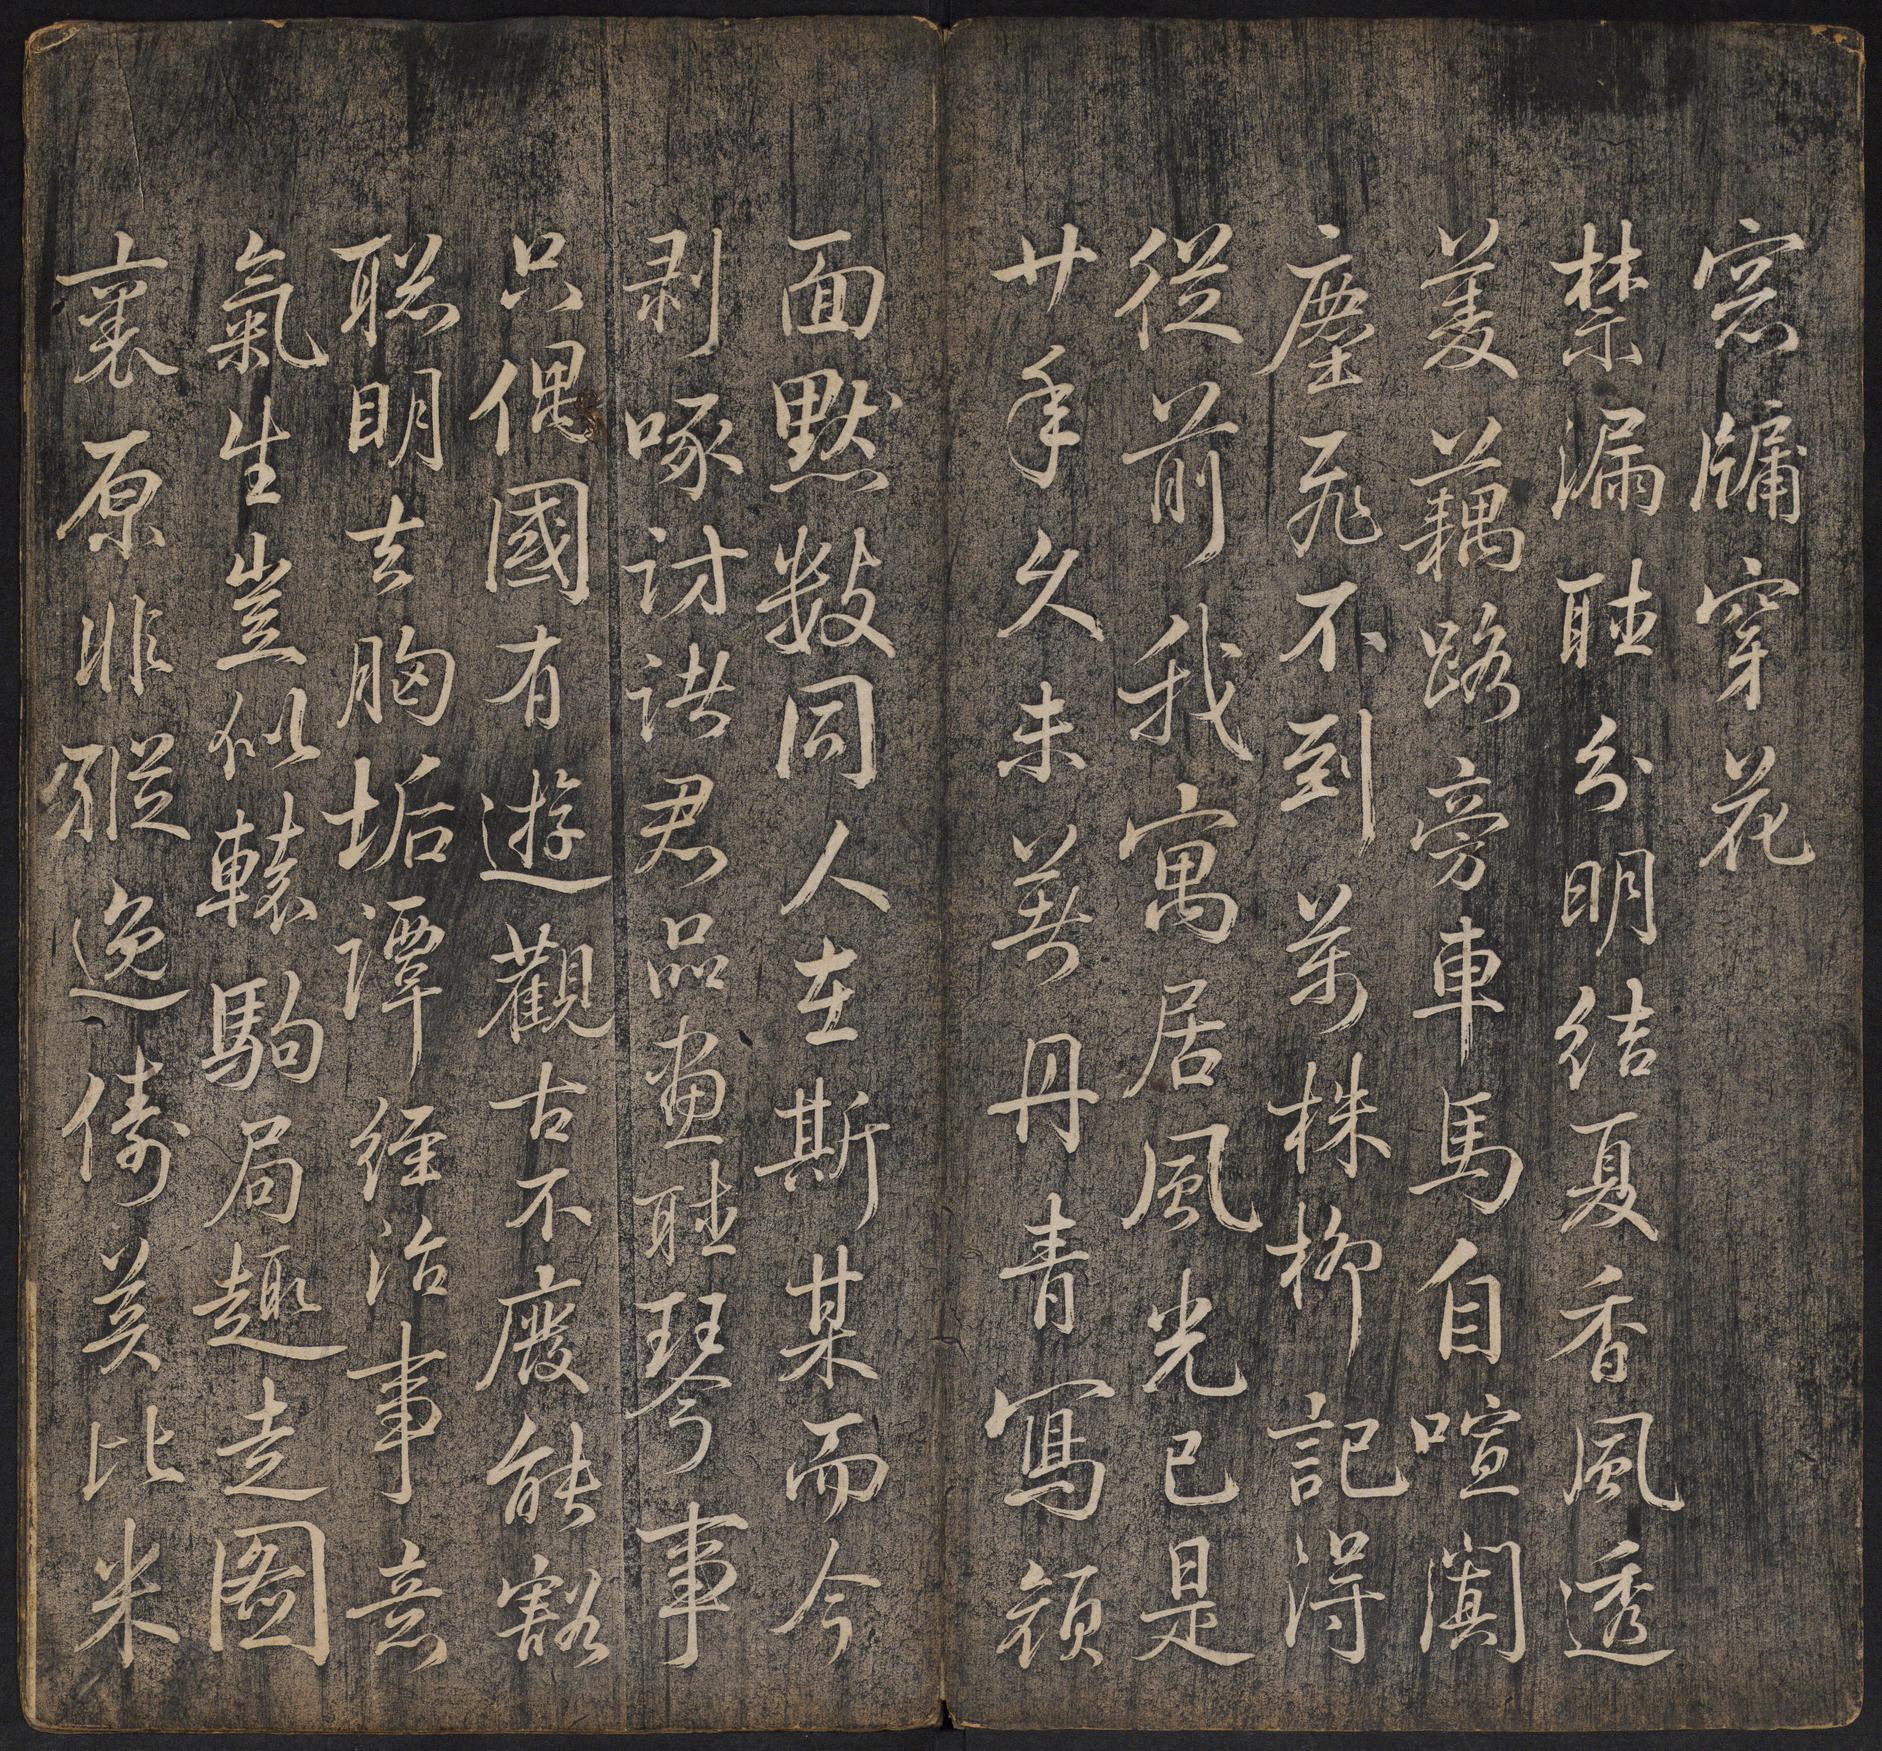 窓牖穿花
禁漏聴分明結夏香風透
菱藕路旁車馬自喧闐
塵飛不到萬株柳記得
從前我寓居風光已是
廿年久未丹青寫
面默數同人在斯某而今
剥啄訪諸君品畫聴琴事
只偶國有遊觀古不廢能豁
聡明去胸垢譚經治事意
氣生豈似轅駒局趣走圖
裏原非縱逸儔莫比米